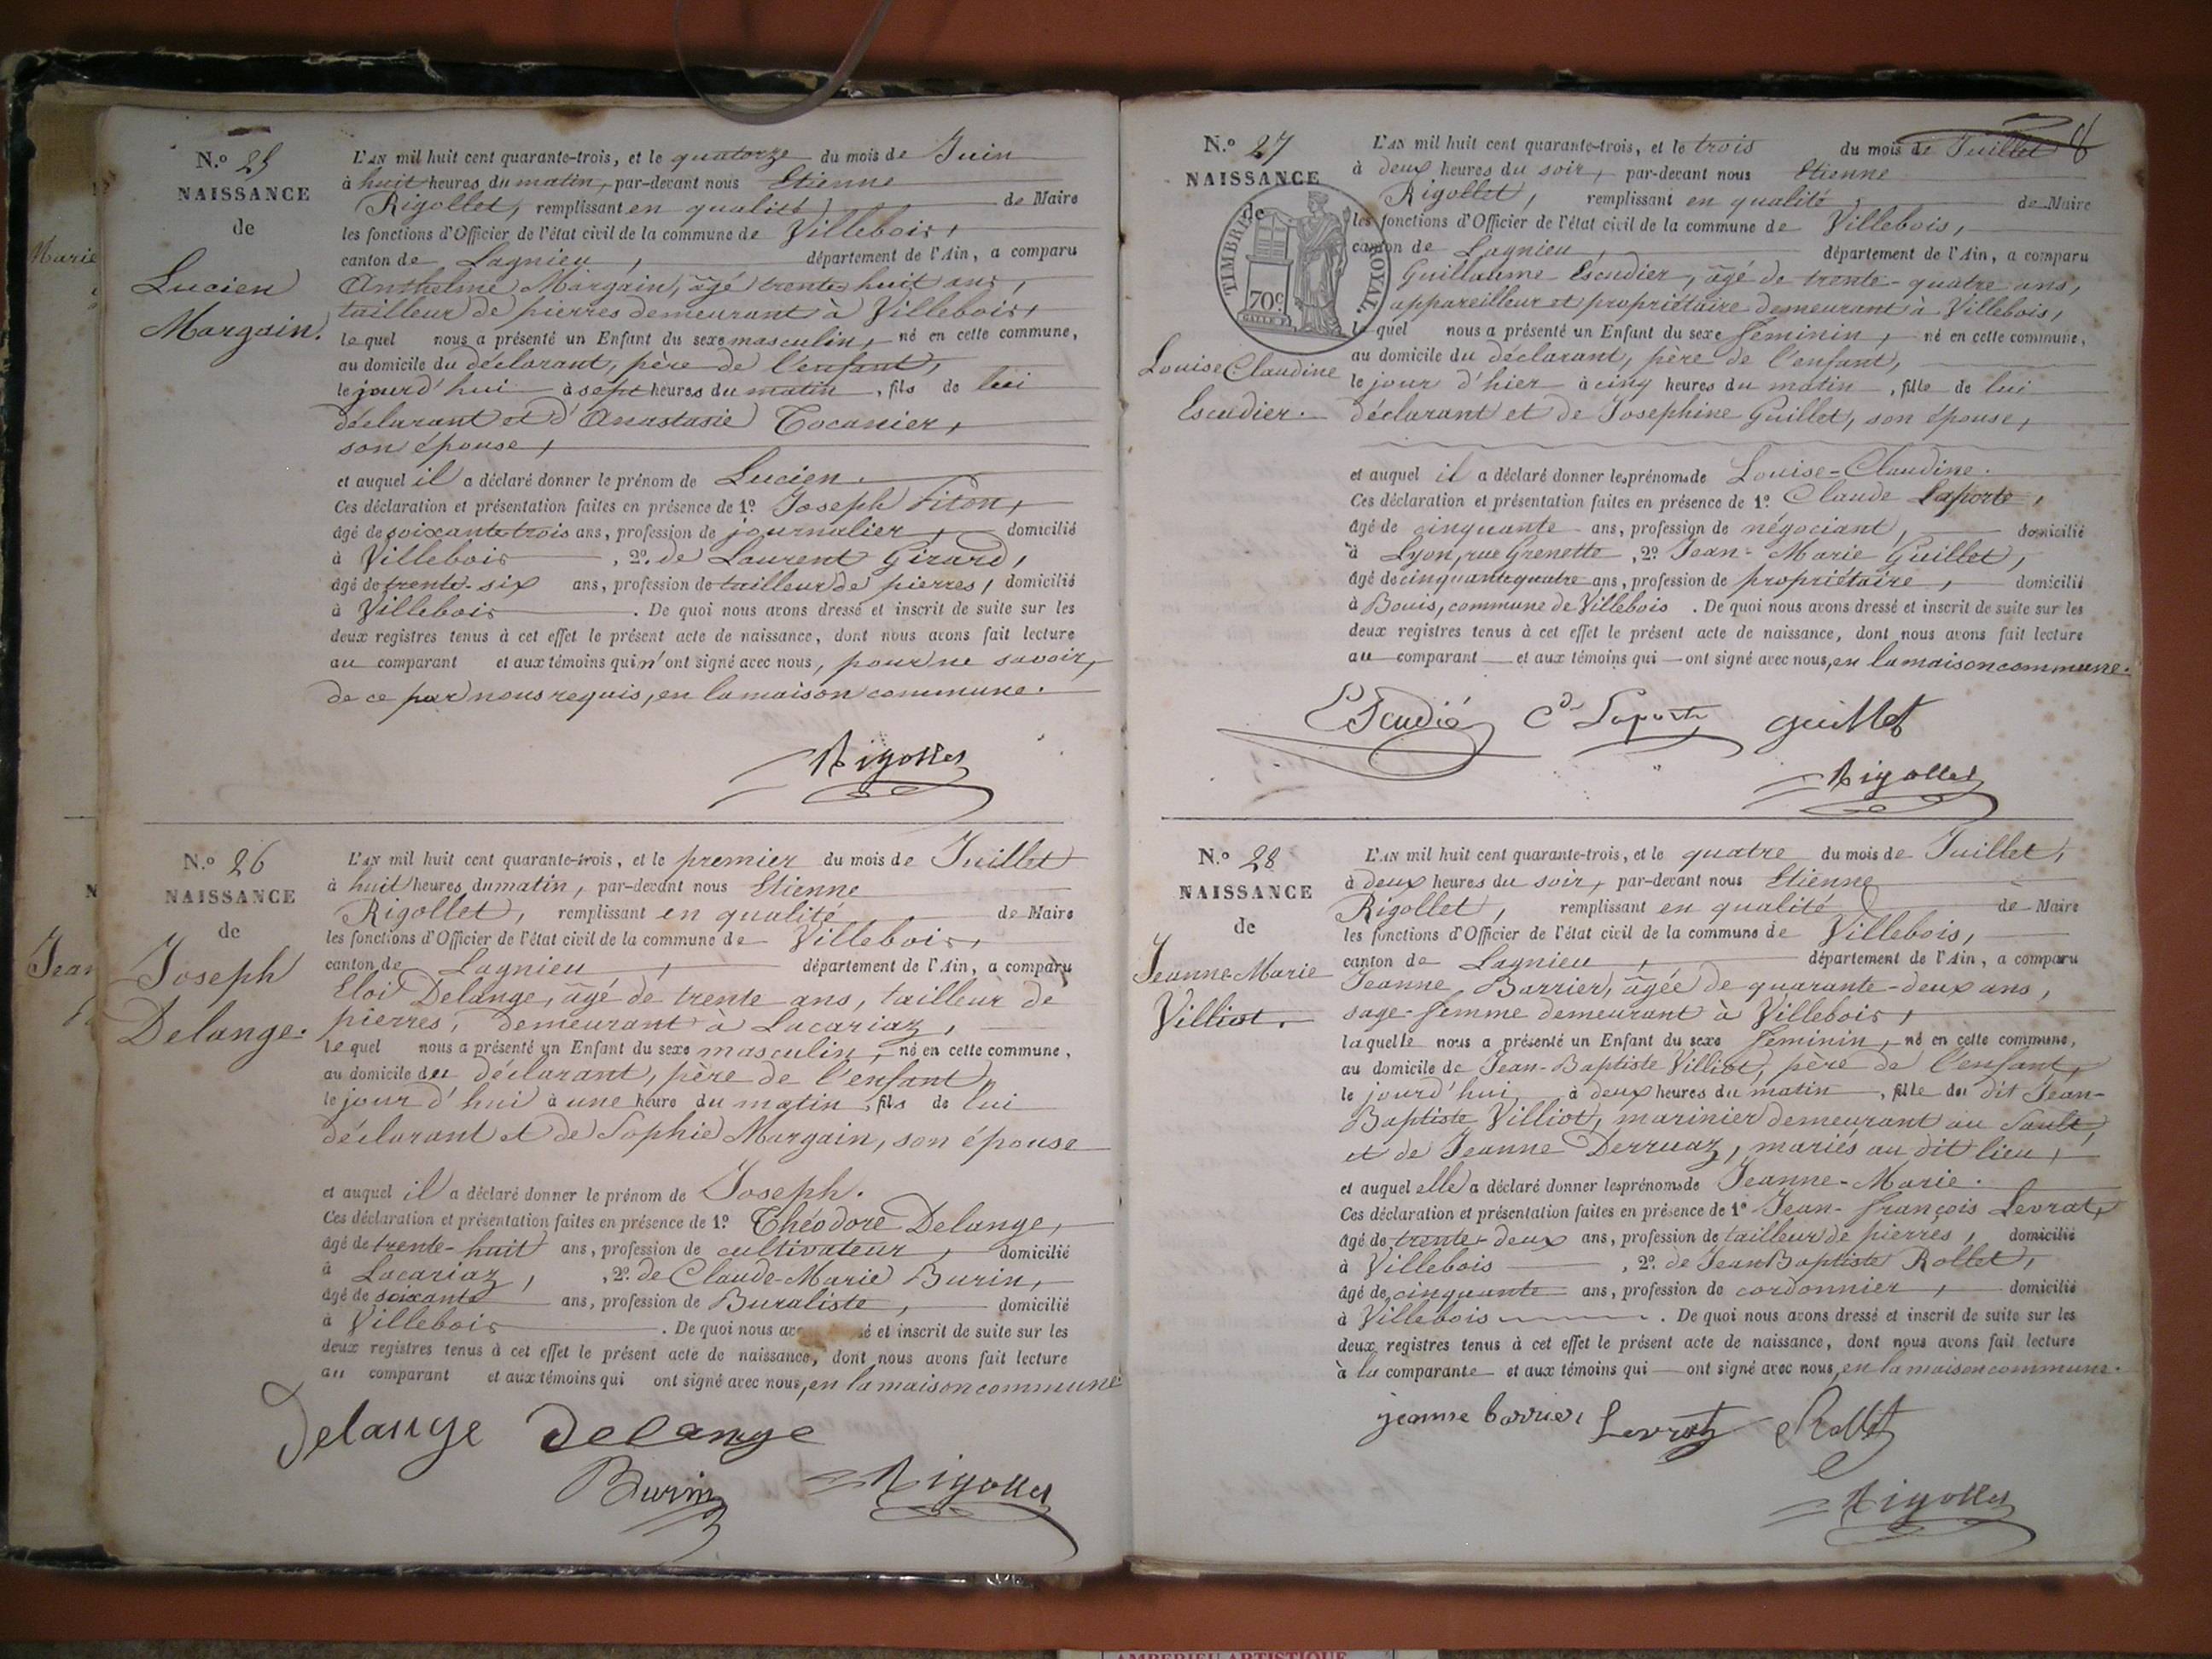 N.º 25
NAISSANCE
de
Lucien
Margain.
L'AN mil huit cent quarante-trois, et le quatorze du mois de Juin
à huit heures du matin, par-devant nous Etienne
Rigollet, remplissant en qualité de Maire
les fonctions d'Officier de l'état civil de la commune de Villebois,
canton de Lagnieu, département de l'Ain, a comparu
Anthelme Margain, âgé trente huit ans,
tailleur de pierres demeurant à Villebois,
lequel nous a présenté un Enfant du sexe masculin, né en cette commune,
au domicile du déclarant, père de l'enfant,
le jourd'hui à sept heures du matin, fils de lui
déclarant et d'Anastasie Cocanier,
son épouse,
et auquel il a déclaré donner le prénom de Lucien.
Ces déclaration et présentation faites en présence de 1º Joseph Fiton,
âgé de soixante trois ans, profession de journalier, domicilié
à Villebois, 2º. de Laurent Girard,
âgé de trente-six ans, profession de tailleur de pierres, domicilié
à Villebois. De quoi nous avons dressé et inscrit de suite sur les
deux registres tenus à cet effet le présent acte de naissance, dont nous avons fait lecture
au comparant et aux témoins qui n'ont signé avec nous, pour ne savoir,
de ce par nous requis, en la maison commune.
Rigollet
N.º 26
NAISSANCE
de
Joseph
Delange.
L'AN mil huit cent quarante-trois, et le premier du mois de Juillet
à huit heures du matin, par-devant nous Etienne
Rigollet, remplissant en qualité de Maire
les fonctions d'Officier de l'état civil de la commune de Villebois,
canton de Lagnieu, département de l'Ain, a comparu
Eloi Delange, âgé de trente ans, tailleur de
pierres, demeurant à Lacariaz,
lequel nous a présenté un Enfant du sexe masculin, né en cette commune,
au domicile du déclarant, père de l'enfant,
le jour d'hui à une heure du matin, fils de lui
déclarant et de Sophie Margain, son épouse
et auquel il a déclaré donner le prénom de Joseph.
Ces déclaration et présentation faites en présence de 1º Théodore Delange,
âgé de trente-huit ans, profession de cultivateur, domicilié
à Lacariaz, 2º. de Claude-Marie Burin,
âgé de soixante ans, profession de Buraliste, domicilié
à Villebois. De quoi nous av sé et inscrit de suite sur les
deux registres tenus à cet effet le présent acte de naissance, dont nous avons fait lecture
au comparant et aux témoins qui ont signé avec nous, en la maison commune
Delange Delange
Burin Rigollet
8
N.º 27
NAISSANCE
de
TIMBRE ROYAL.
70c
Louise Claudine
Escudier.
L'AN mil huit cent quarante-trois, et le trois du mois de Juillet
à deux heures du soir, par-devant nous Etienne
Rigollet, remplissant en qualité de Maire
les fonctions d'Officier de l'état civil de la commune de Villebois,
canton de Lagnieu, département de l'Ain, a comparu
Guillaume Escudier, âgé de trente-quatre ans,
appareilleur et propriétaire demeurant à Villebois,
lequel nous a présenté un Enfant du sexe féminin, né en cette commune,
au domicile du déclarant, père de l'enfant,
le jour d'hier à cinq heures du matin, fille de lui
déclarant et de Josephine Guillet, son épouse,
et auquel il a déclaré donner les prénoms de Louise-Claudine.
Ces déclaration et présentation faites en présence de 1º. Claude Laporte,
âgé de cinquante ans, profession de négociant, domicilié
à Lyon, rue Grenette, 2º. Jean-Marie Guillet,
âgé de cinquante quatre ans, profession de propriétaire, domicilié
à Bouis, commune de Villebois. De quoi nous avons dressé et inscrit de suite sur les
deux registres tenus à cet effet le présent acte de naissance, dont nous avons fait lecture
au comparant et aux témoins qui ont signé avec nous, en la maison commune.
Escudié Cd Laporte Guillet
Rigollet
N.º 28
NAISSANCE
de
Jeanne-Marie
Villiot.
L'AN mil huit cent quarante-trois, et le quatre du mois de Juillet,
à deux heures du soir, par-devant nous Etienne
Rigollet, remplissant en qualité de Maire
les fonctions d'Officier de l'état civil de la commune de Villebois,
canton de Lagnieu, département de l'Ain, a comparu
Jeanne Barrier, âgée de quarante-deux ans,
sage-femme demeurant à Villebois,
laquelle nous a présenté un Enfant du sexe féminin, né en cette commune,
au domicile de Jean-Baptiste Villiot, père de l'enfant,
le jourd'hui à deux heures du matin, fille du dit Jean-
Baptiste Villiot, marinier demeurant au Sault,
et de Jeanne Derruaz, mariés au dit lieu,
et auquel elle a déclaré donner les prénoms de Jeanne-Marie.
Ces déclaration et présentation faites en présence de 1º Jean-François Levrat,
âgé de trente-deux ans, profession de tailleur de pierres, domicilié
à Villebois, 2º. de Jean Baptiste Rollet,
âgé de cinquante ans, profession de cordonnier, domicilié
à Villebois. De quoi nous avons dressé et inscrit de suite sur les
deux registres tenus à cet effet le présent acte de naissance, dont nous avons fait lecture
à la comparante et aux témoins qui ont signé avec nous, en la maison commune.
jeanne barrier Levrat Rollet
Rigollet